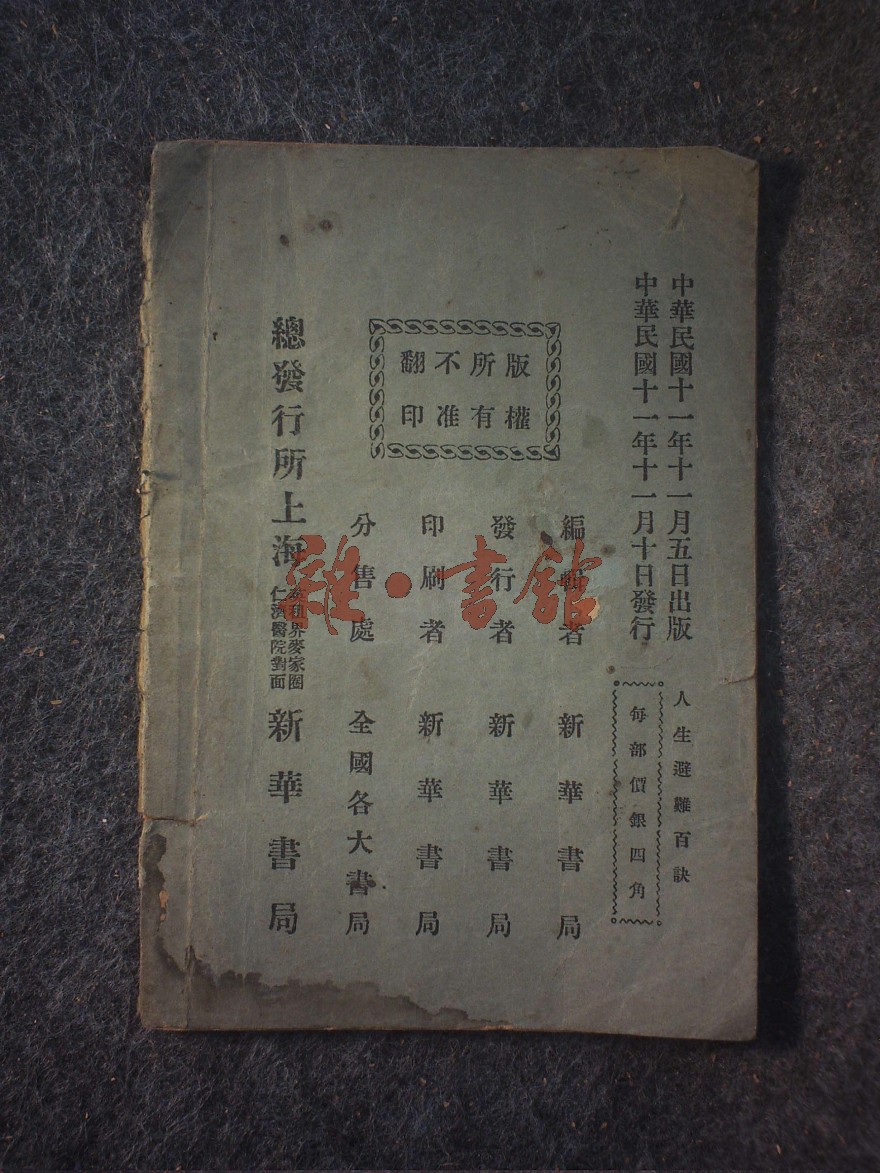 中華民國十一年十一月五日出版
中華民國十一年十一月十日發行
人生避難百訣
每部價銀四角
版權
所有
不准
翻印
編輯者 新華書局
發行者 新華書局
印刷者 新華書局
分售處 全國各大書局
總發行所上海
英租界麥家圈
仁濟醫院對面
新華書局
雜·書館